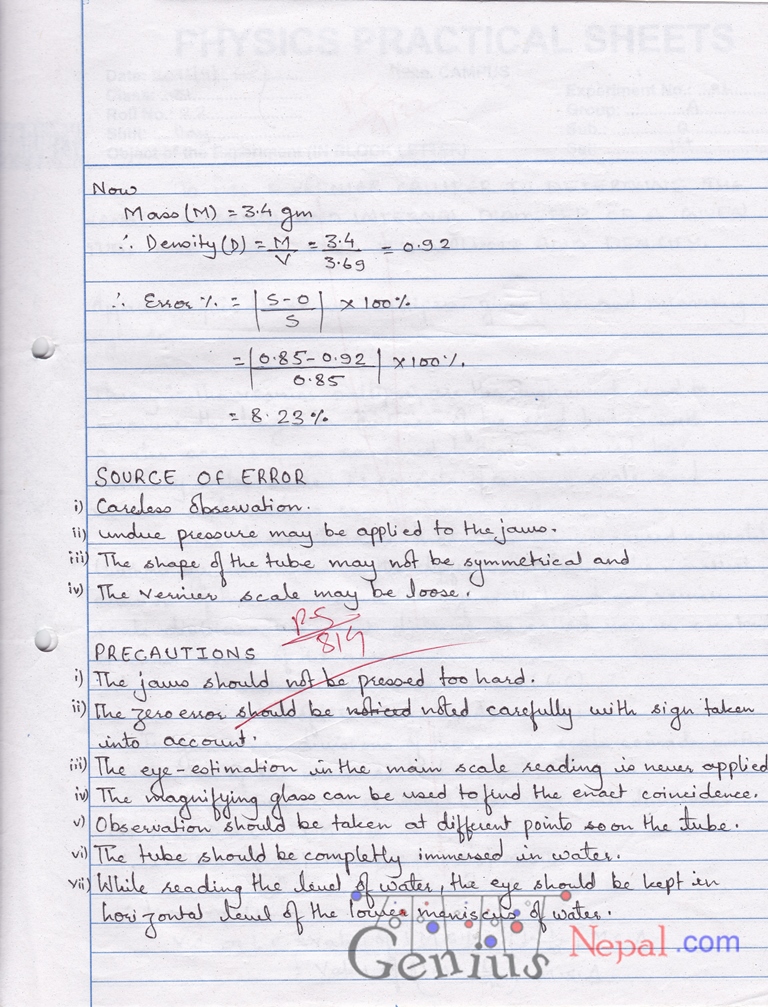 PHYSICS PRACTICAL SHEETS
Now
Mass (M) = 3.4 gm
∴ Density (D) = M/V = 3.4/3.69 = 0.92
∴ Error % = |S-O/S| × 100%
= |0.85-0.92/0.85| × 100%.
= 8.23%
SOURCE OF ERROR
i) Careless observation.
ii) undue pressure may be applied to the jaws.
iii) The shape of the tube may not be symmetrical and
iv) The vernier scale may be loose.
PRECAUTIONS
i) The jaws should not be pressed too hard.
ii) The zero error should be noticed noted carefully with sign taken
into account.
iii) The eye-estimation in the main scale reading is never applied
iv) The magnifying glass can be used to find the exact coincidence.
v) Observation should be taken at different points so on the tube.
vi) The tube should be completly immersed in water.
vii) While reading the level of water, the eye should be kept in
horizontal level of the lower meniscus of water.
Genius Nepal.com